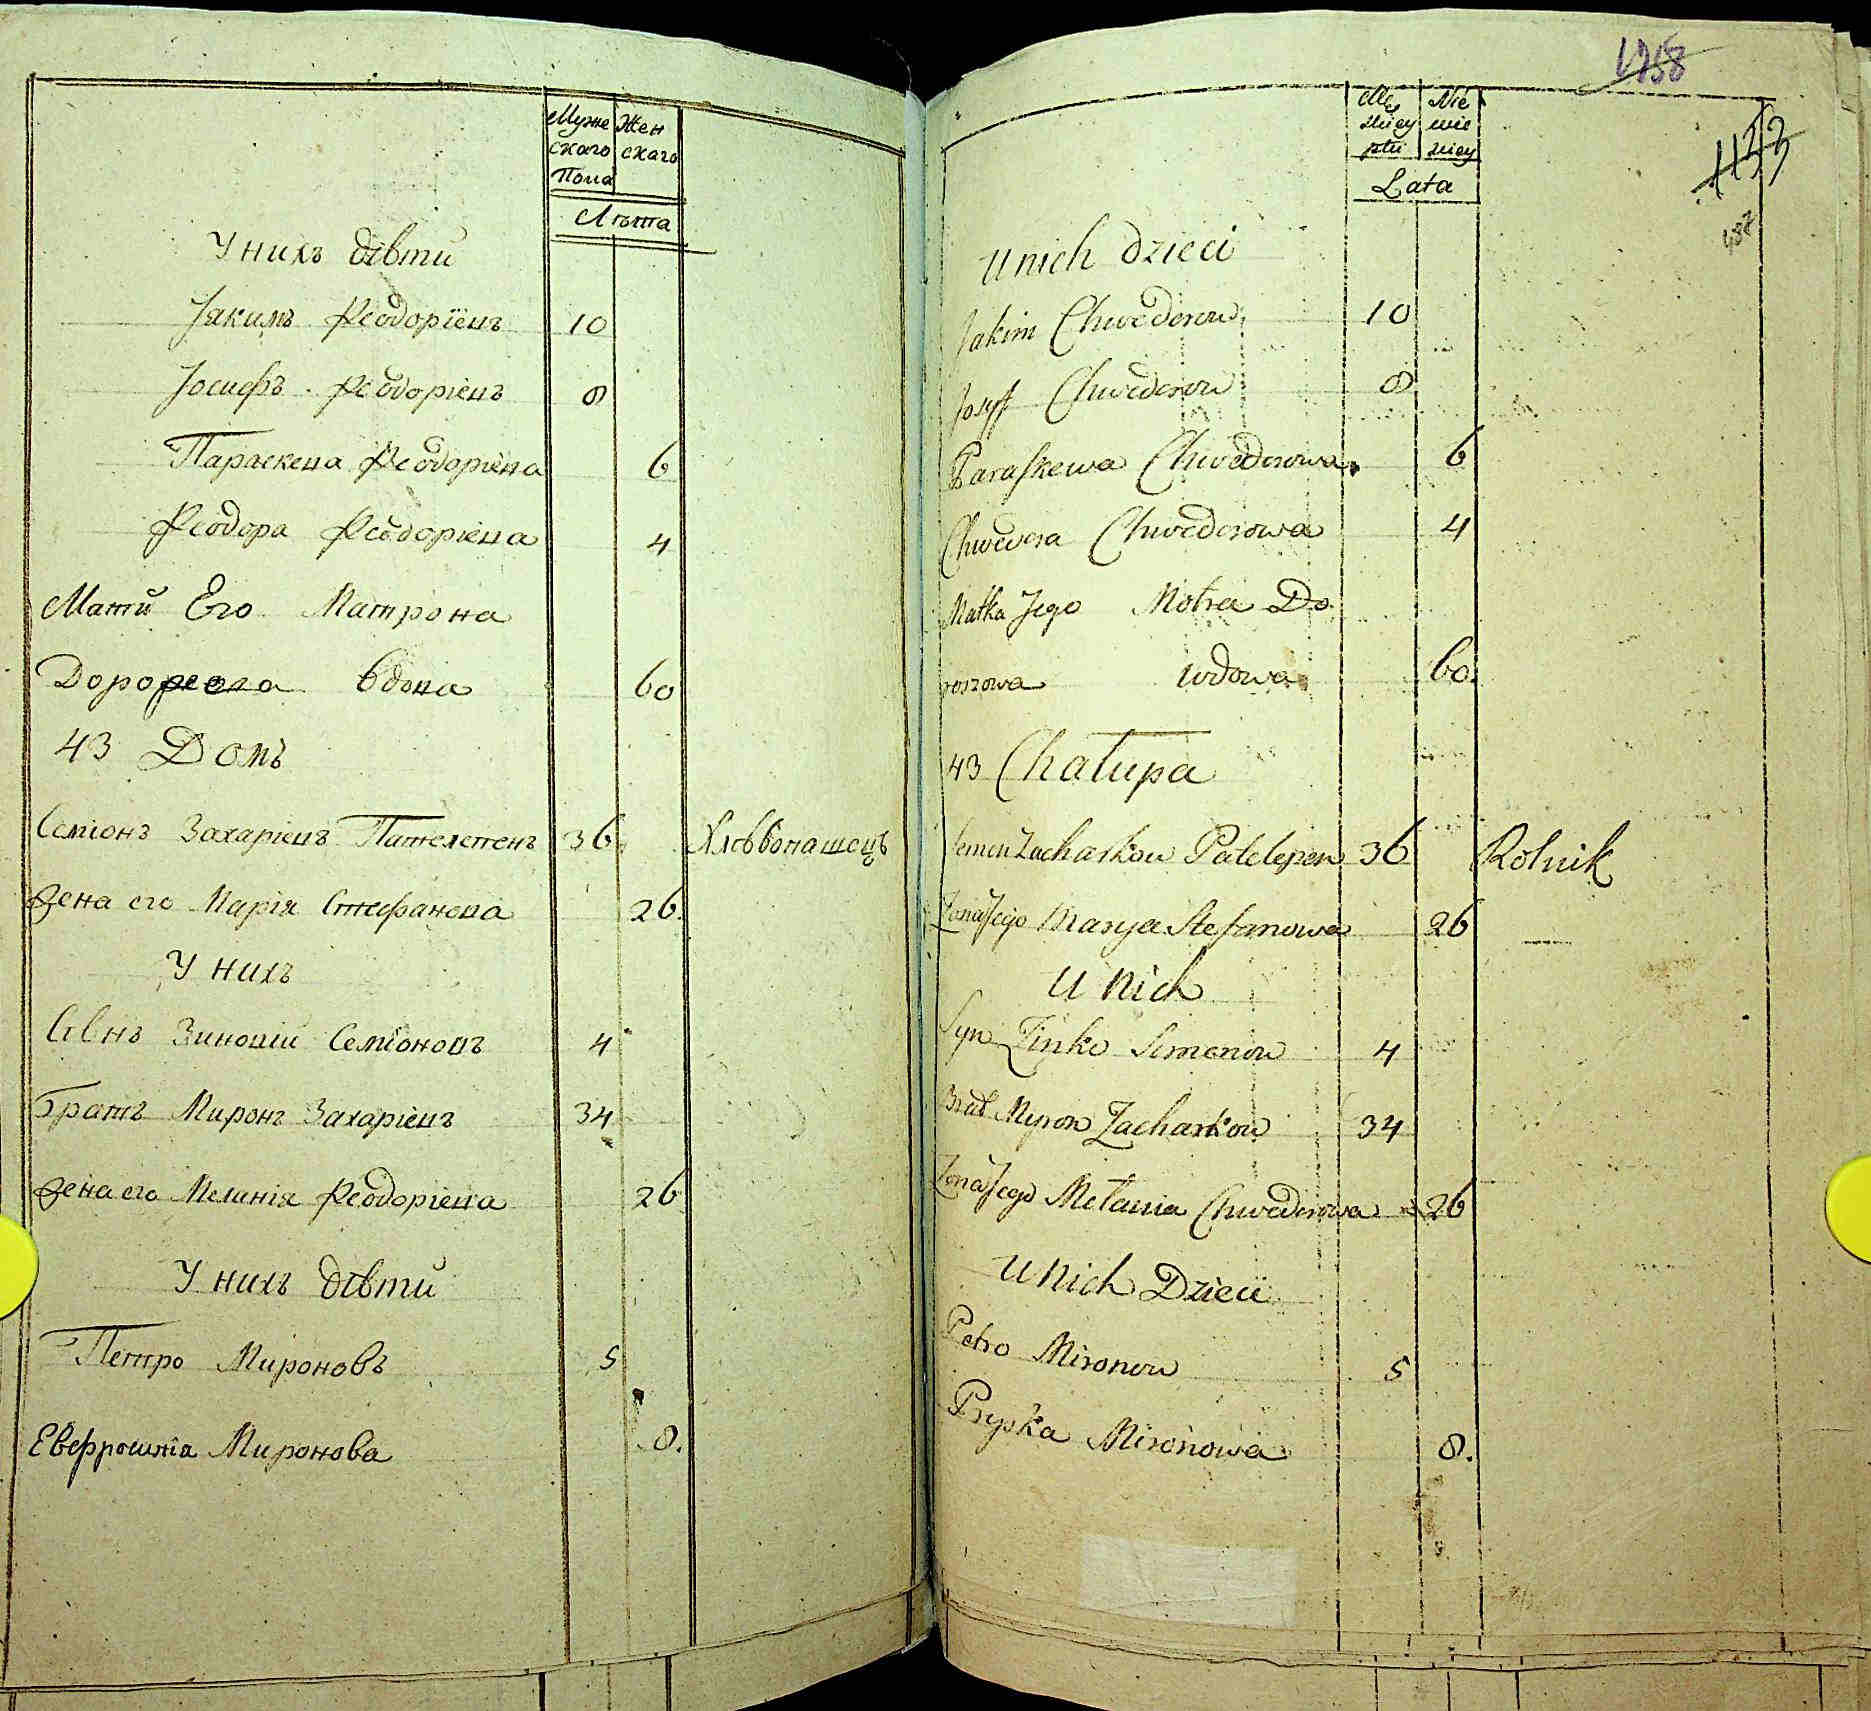 Муже Жен
скаго скаго
Пола
Лѣта
У нихъ дѣти
Іякимъ Ѳеодорїевъ 10
Іосифъ Ѳеодоріевъ 8
Параскева Ѳеодоріева 6
Ѳеодора Ѳеодоріева 4
Мати Его Матрона
Дорофеева Вдова 60
43 Домъ
Семіонъ Захаріевъ Пателепенъ 36 Хлѣбопашецъ
Жена его Марія Стефанова 26.
У нихъ
Сынъ Зиновій Семіоновъ 4
Братъ Миронъ Захаріевъ 34
Жена его Меланія Ѳеодоріева 26
У нихъ дѣти
Петро Мироновъ 5
Евфросинїа Миронова 8.
1158
1153
487
Mę Nie
skiey wie
płci skiey
Lata
U nich dzieci
Jakim Chwedorow 10
Josyf Chwedorow 8
Paraskewa Chwedorowa 6
Chwedora Chwedorowa 4
Matka Jego Motra Do
roszowa wdowa 60.
43 Chałupa
Semen Zacharkow Patelepen 36 Rolnik
Zona Jego Marya Stefanowa 26
U Nich
Syn Zinko Semenow 4
Brat Myron Zacharkow 34
Zona Jego Mełania Chwedorowa 26
U Nich Dzieci
Petro Mironow 5
Pryska Mironowa 8.